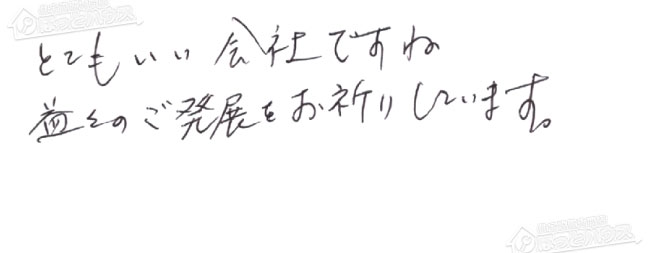 とてもいい会社ですね
益々のご発展をお祈りしています。